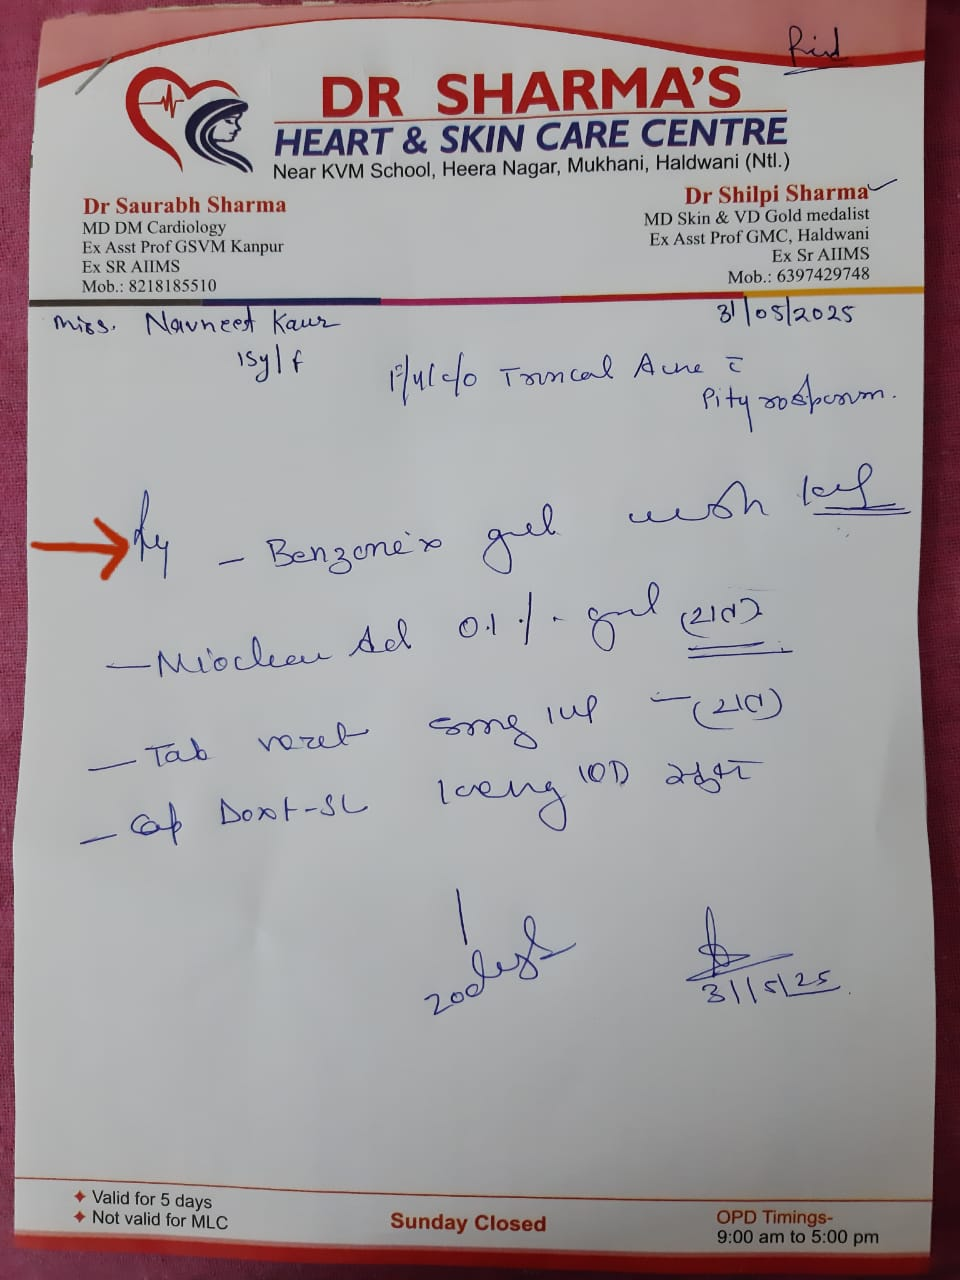 DR SHARMA'S
HEART & SKIN CARE CENTRE
Near KVM School, Heera Nagar, Mukhani, Haldwani (Ntl.)
Dr Saurabh Sharma
MD DM Cardiology
Ex Asst Prof GSVM Kanpur
Ex SR AIIMS
Mob.: 8218185510
Dr Shilpi Sharma
MD Skin & VD Gold medalist
Ex Asst Prof GMC, Haldwani
Ex Sr AIIMS
Mob.: 6397429748
Miss. Navneet Kaur
31/05/2025
/ F
c/o Truncal Acne c̄
Pityrosporum.
- Benzoneix gel wash
- Mioclean Ad 0.1 %. gel (रात)
- Tab (रात)
- Cap Doxt-SL
20days
31/5/25
Valid for 5 days
Not valid for MLC
Sunday Closed
OPD Timings-
9:00 am to 5:00 pm